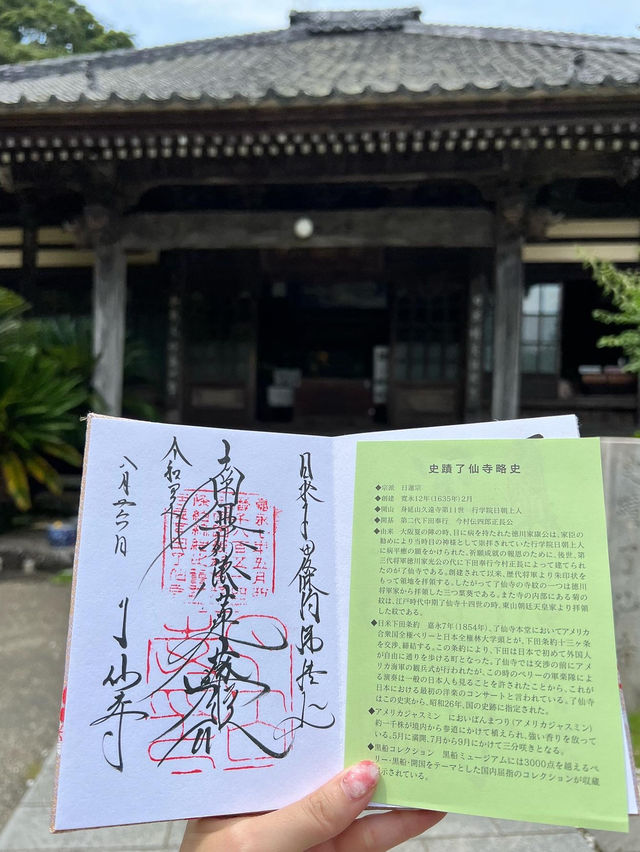 南無妙法蓮華経
了仙寺
史蹟了仙寺略史
◆宗派　日蓮宗
◆創建　寛永12年(1635年)2月
◆開山　身延山久遠寺第11世　行学院日朝上人
◆開基　第二代下田奉行　今村伝四郎正長公
◆由来　大阪夏の陣の時、目に病を持たれた徳川家康公は、家臣の
勧めにより当時目の神様として崇拝されていた行学院日朝上人
に病平癒の願をかけられた。祈願成就の報恩のために、後世、第
三代将軍徳川家光公の代に下田奉行今村正長によって建てられ
たのが了仙寺である。創建されて以来、歴代将軍より朱印状を
もって領地を拝領する。したがって了仙寺の寺の紋の一つは徳川
将軍家から拝領した三つ葉葵である。また寺の内部にある菊の
紋は、江戸時代中期了仙寺十四世の時、東山朝廷天皇家より拝領
した紋である。
◆日米下田条約　嘉永7年(1854年)、了仙寺本堂においてアメリカ
合衆国全権ペリーと日本全権林大学頭とが、下田条約十三ヶ条
を交渉、締結する。この条約により、下田は日本で初めて外国人
が自由に通りを歩ける町となった。了仙寺では交渉の前にアメ
リカ海軍の観兵式が行われたが、この時のペリーの軍楽隊によ
る演奏は一般の日本人も見ることを許されたことから、これが
日本における最初の洋楽のコンサートと言われている。了仙寺
はこの史実から、昭和26年、国の史跡に指定された。
◆アメリカジャスミン　においばんまつり(アメリカジャスミン)
約一千株が境内から参道にかけて植えられ、強い香りを放って
いる。5月に満開、7月から9月にかけて三分咲きとなる。
◆黒船コレクション　黒船ミュージアムには3000点を越えるペ
リー・黒船・開国をテーマとした国内屈指のコレクションが収蔵
展示されている。